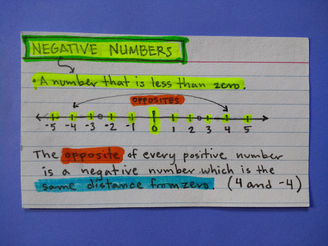 NEGATIVE NUMBERS
• A number that is less than zero.
OPPOSITES
-5 -4 -3 -2 -1 0 1 2 3 4 5
The opposite of every positive number
is a negative number which is the
same distance from zero (4 and -4)